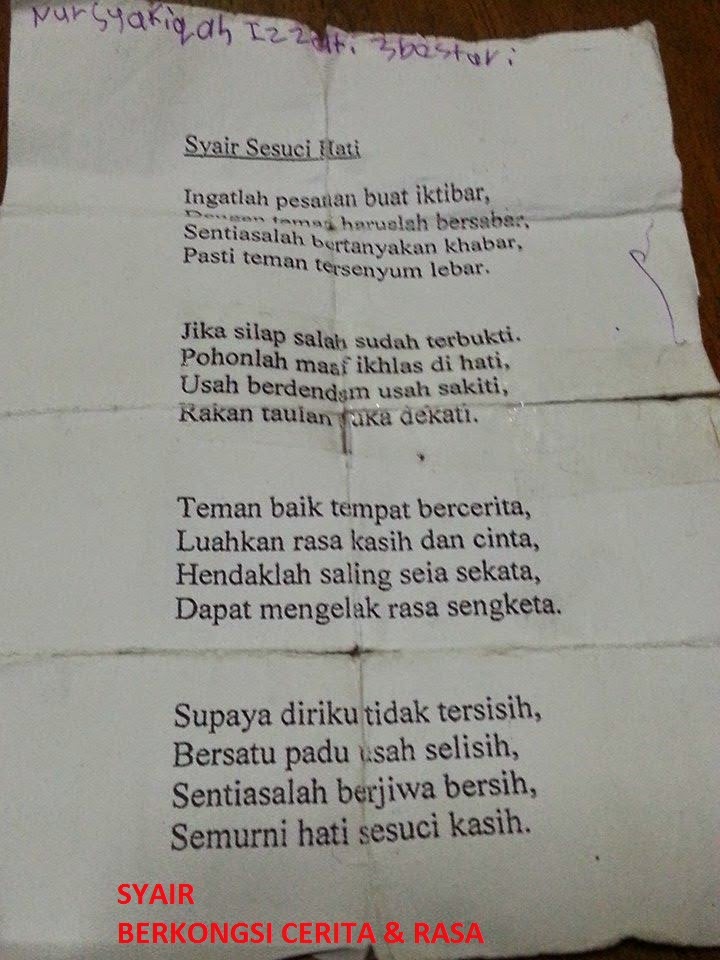 Nursyakiqah Izzati 3bastari
Syair Sesuci Hati
Ingatlah pesanan buat iktibar,
Dengan teman haruslah bersabar,
Sentiasalah bertanyakan khabar,
Pasti teman tersenyum lebar.
Jika silap salah sudah terbukti.
Pohonlah maaf ikhlas di hati,
Usah berdendam usah sakiti,
Rakan taulan suka dekati.
Teman baik tempat bercerita,
Luahkan rasa kasih dan cinta,
Hendaklah saling seia sekata,
Dapat mengelak rasa sengketa.
Supaya diriku tidak tersisih,
Bersatu padu usah selisih,
Sentiasalah berjiwa bersih,
Semurni hati sesuci kasih.
SYAIR
BERKONGSI CERITA & RASA